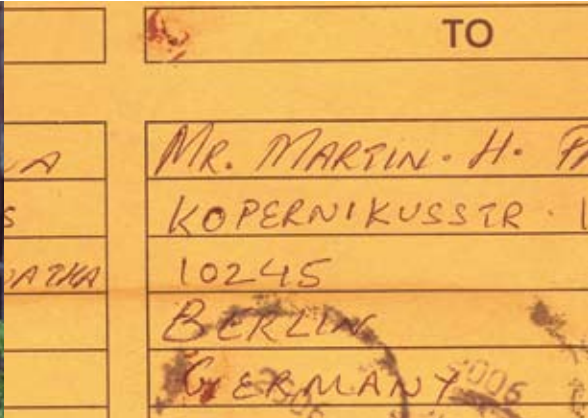 TO
MR. MARTIN. H.
KOPERNIKUSSTR.
10245
BERLIN
GERMANY
2006